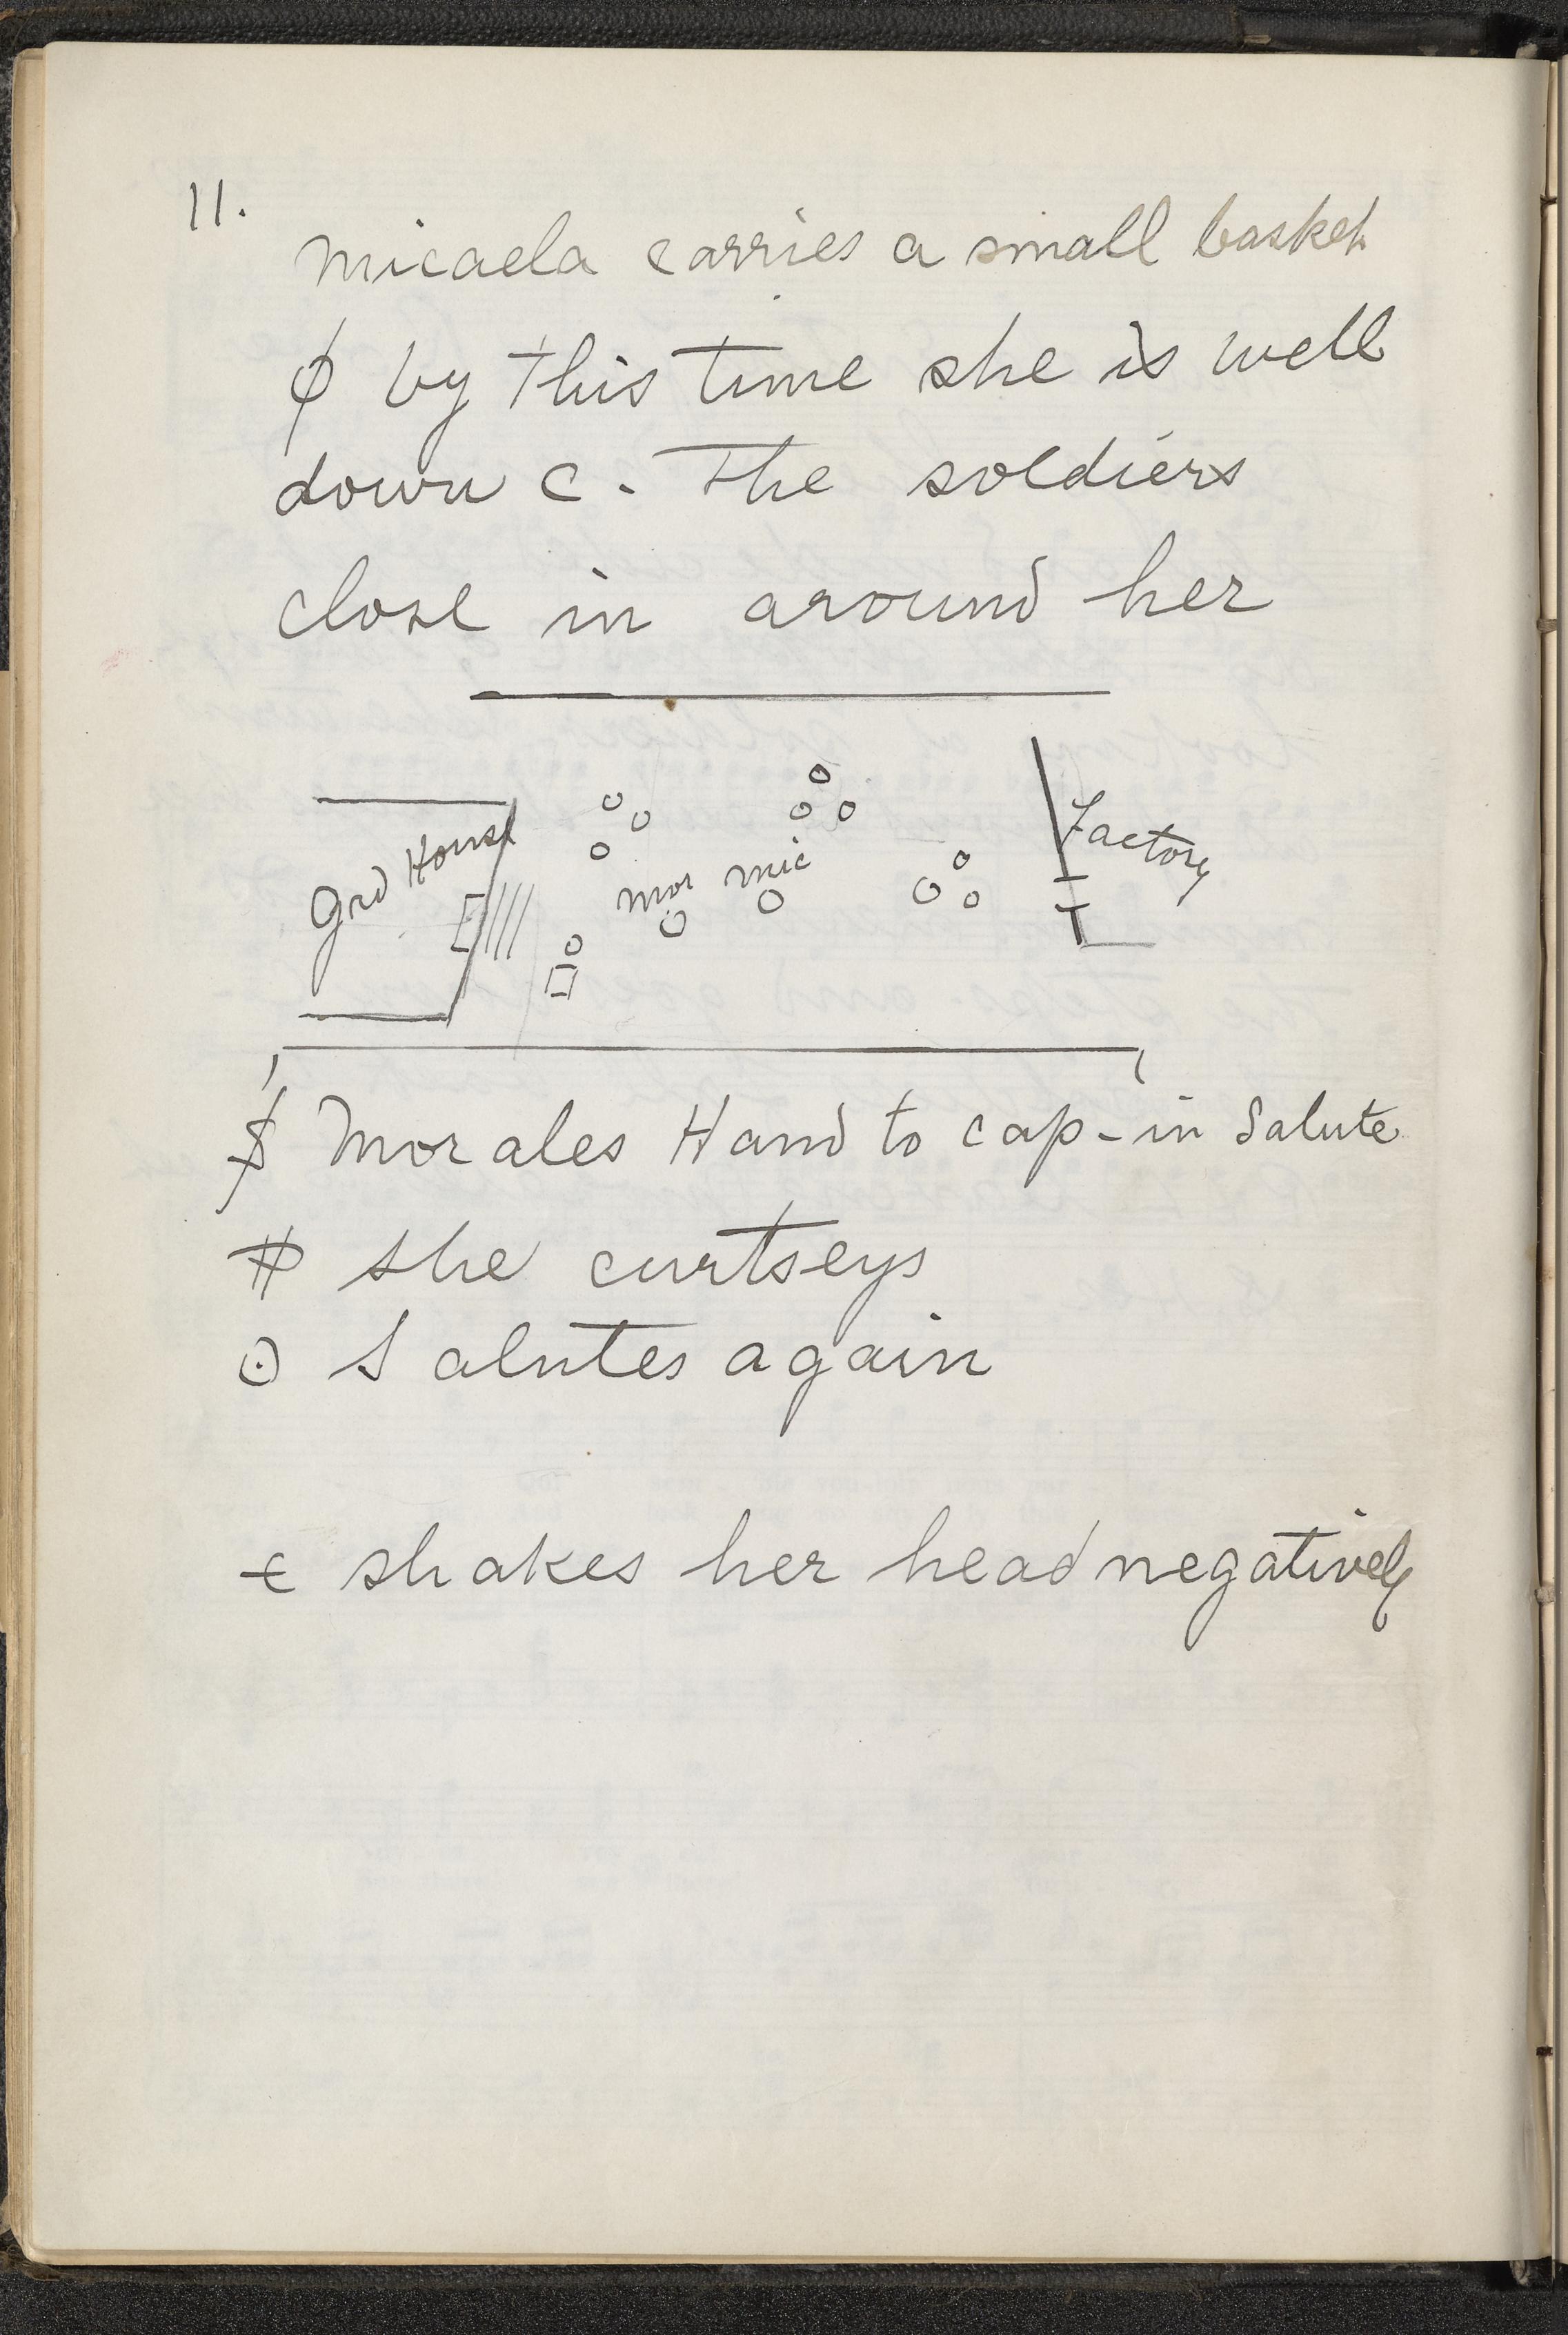 11.
Micaela carries a small basket
ϕ by this time she is well
down C. The soldiers
close in around her
Grd House
Mor Mic
Factory
$ Morales Hand to cap - in Salute
# she curtseys
⊙ Salutes again
€ shakes her head negatively